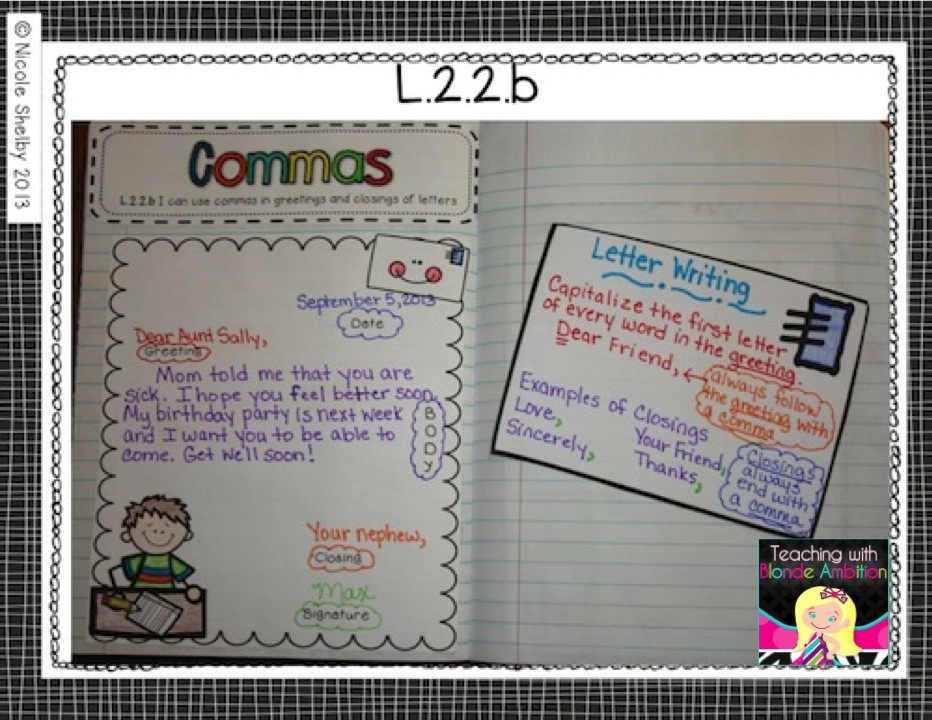 © Nicole Shelby 2013
L.2.2.b
Commas
L.2.2.b I can use commas in greetings and closings of letters
September 5, 2013
Date
Dear Aunt Sally,
Greeting
Mom told me that you are
sick. I hope you feel better soon.
My birthday party is next week
and I want you to be able to
come. Get well soon!
BODY
Your nephew,
Closing
Max
Signature
Letter Writing
Capitalize the first letter
of every word in the greeting.
Dear Friend,
always follow
the greeting with
a comma
Examples of Closings
Love,
Your Friend,
Sincerely,
Thanks,
Closings
always
end with
a comma
Teaching with
Blonde Ambition